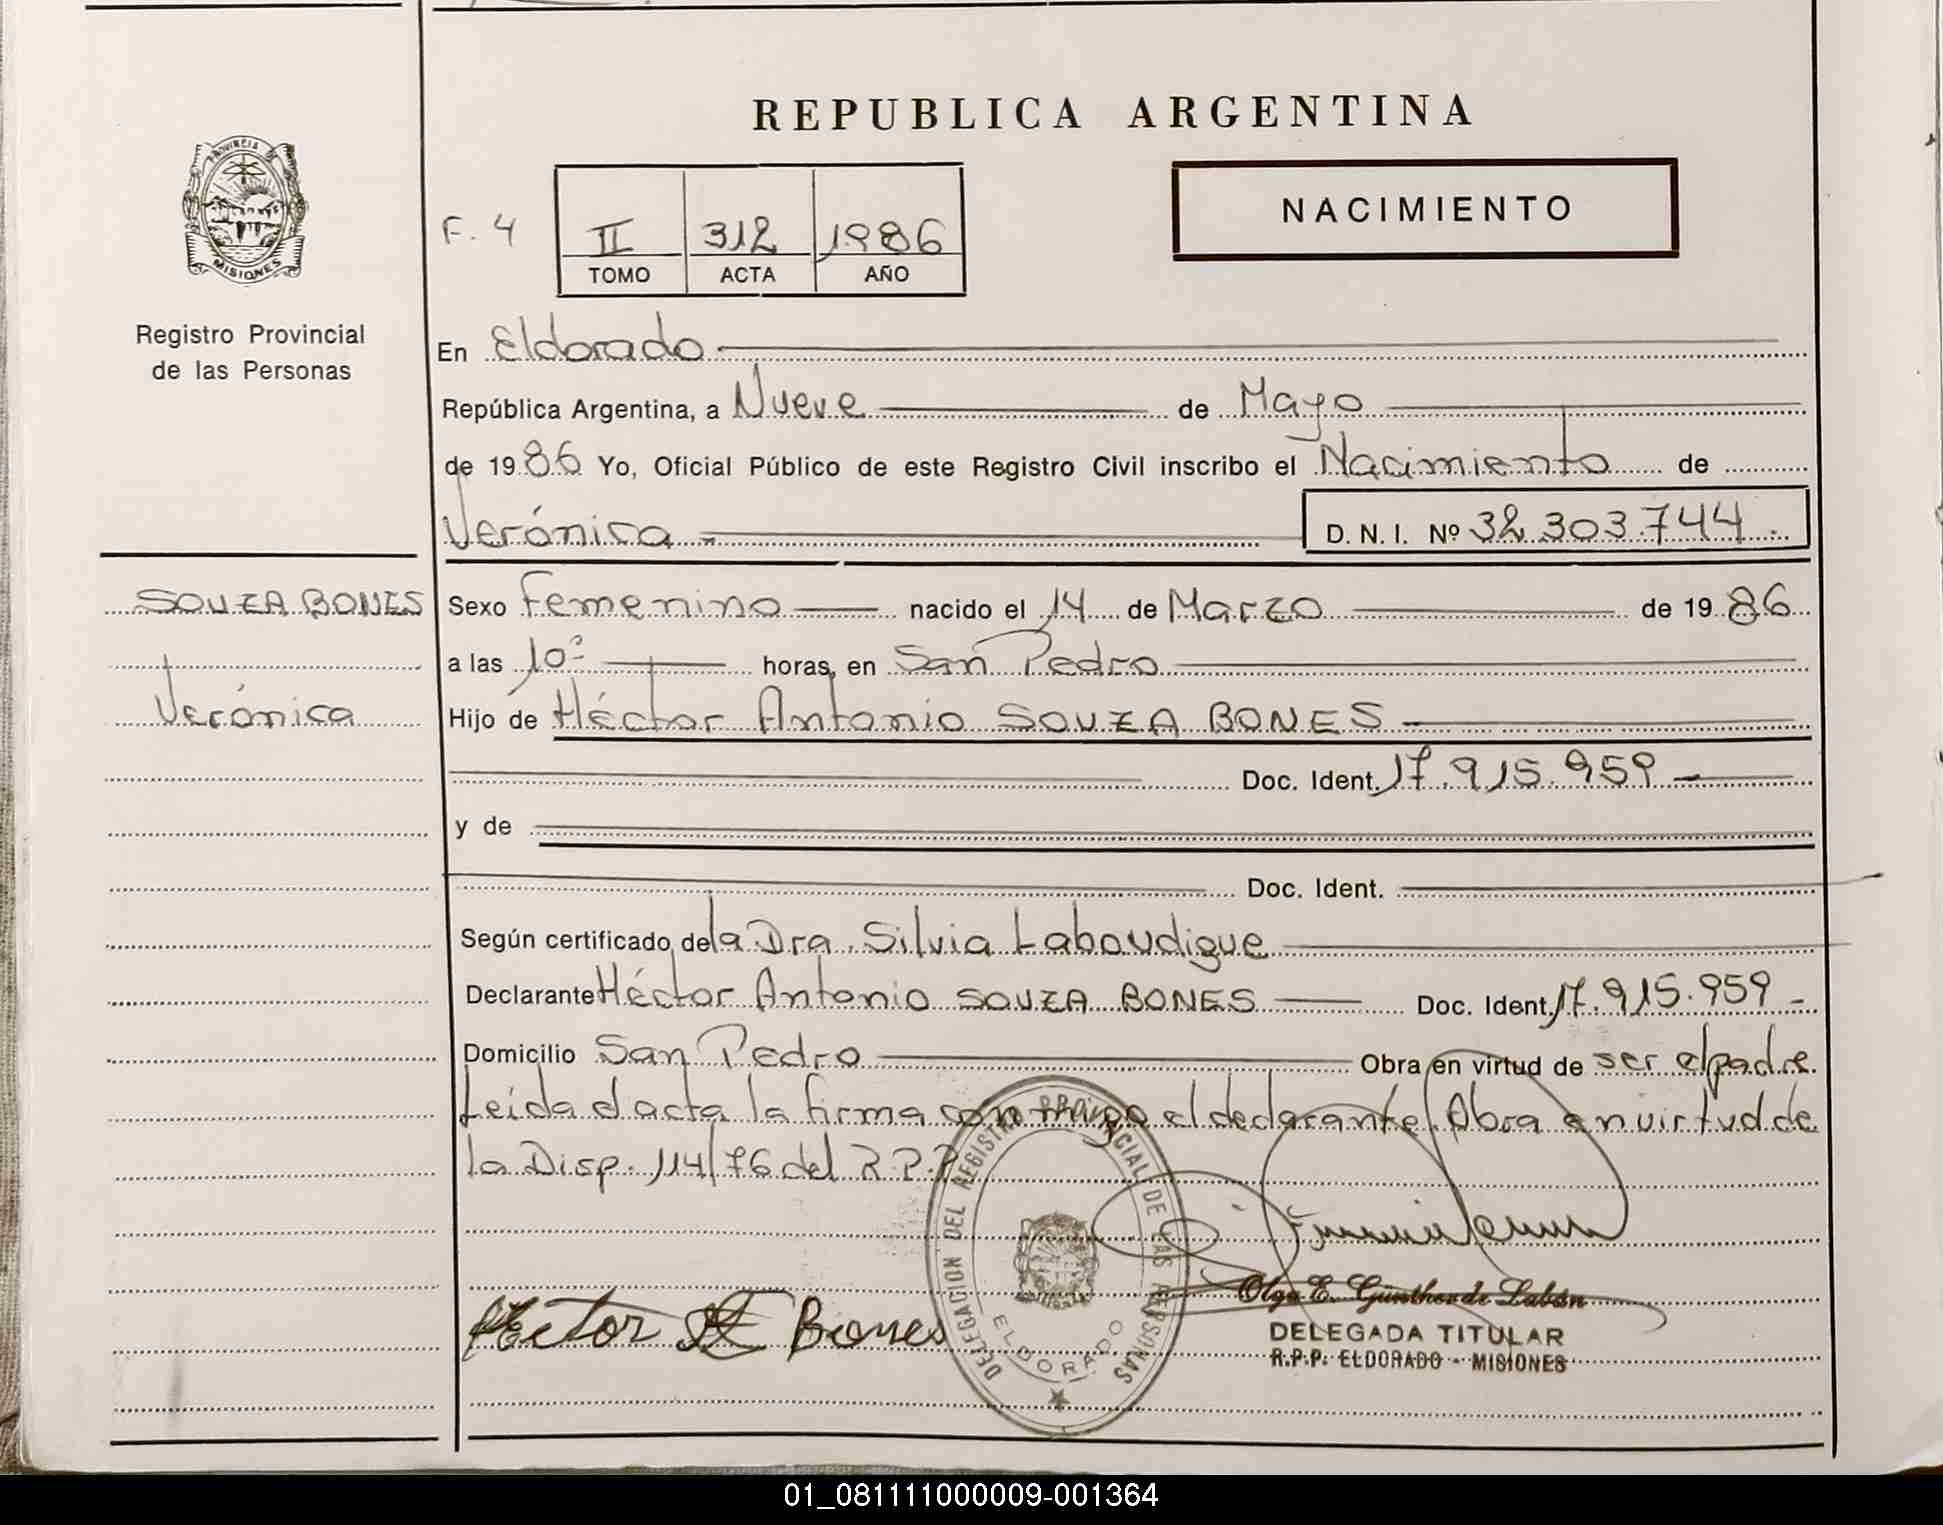 REPUBLICA ARGENTINA
PROVINCIA DE
MISIONES
Registro Provincial
de las Personas
F. 4
II 312 1986
TOMO ACTA AÑO
NACIMIENTO
En Eldorado
República Argentina, a Nueve de Mayo
de 1986 Yo, Oficial Público de este Registro Civil inscribo el Nacimiento de
Verónica D. N. I. Nº 32.303.744.-
SOUZA BONES
Verónica
Sexo Femenino nacido el 14 de Marzo de 1986
a las 10 horas, en San Pedro
Hijo de Héctor Antonio SOUZA BONES
Doc. Ident. 17.915.959
y de
Doc. Ident.
Según certificado de la Dra. Silvia Laboudigue
Declarante Héctor Antonio SOUZA BONES Doc. Ident. 17.915.959 -
Domicilio San Pedro Obra en virtud de ser el padre.
Leída el acta la firma conmigo el declarante. Obra en virtud de
la Disp. 114/76 del R.P.P.
DELEGACION DEL REGISTRO PROVINCIAL DE LAS PERSONAS
ELDORADO
Hector A Bones
Olga E. Günther de Labán
DELEGADA TITULAR
R.P.P. ELDORADO - MISIONES
01_081111000009-001364